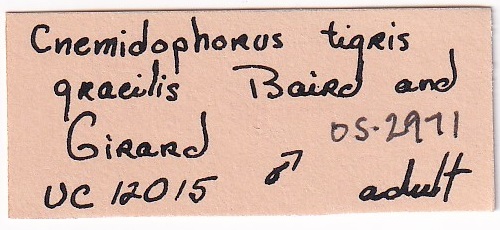 Cnemidophorus tigris
gracilis Baird and
Girard OS-2971
UC 12015 ♂ adult